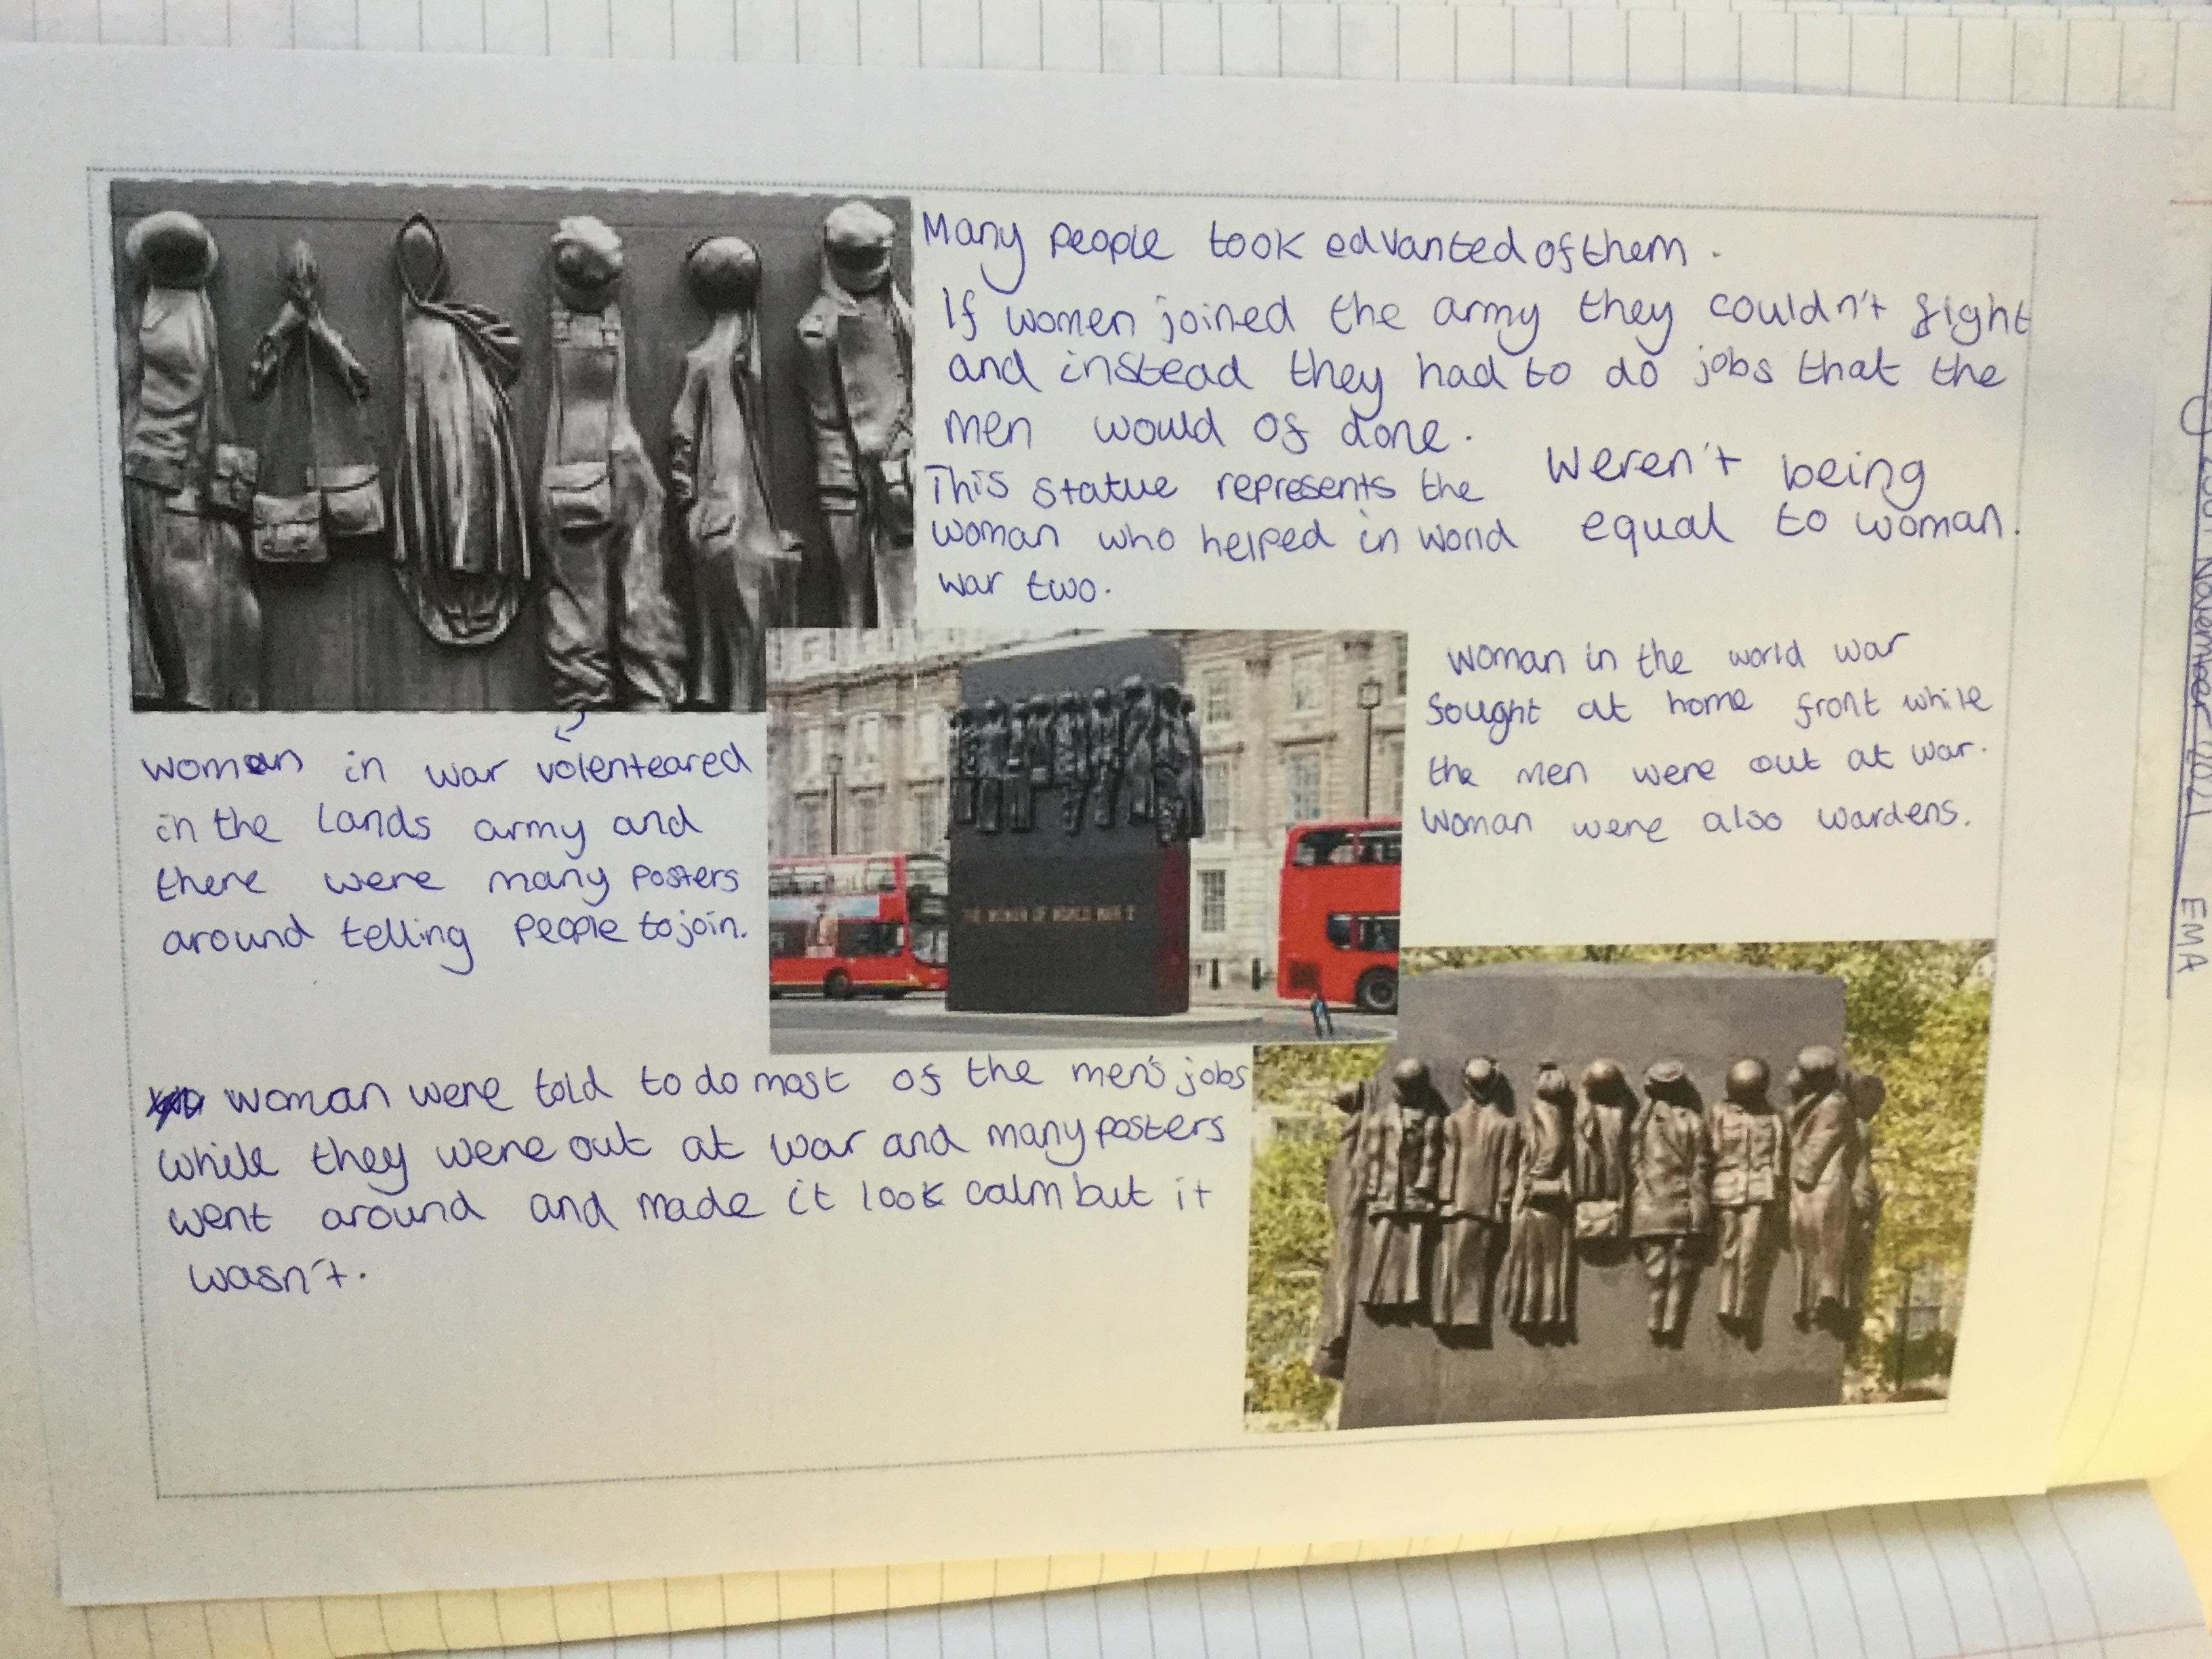 Many people took edvanted of them.
If women joined the army they couldn't fight
and instead they had to do jobs that the
men would of done.
This statue represents the
woman who helped in world
war two.
weren't being
equal to woman.
woman in the world war
fought at home front while
the men were out at war.
woman were also wardens.
woman in war volenteared
in the lands army and
there were many posters
around telling people to join.
THE WOMEN OF WORLD WAR II
woman were told to do most of the men's jobs
while they were out at war and many posters
went around and made it look calm but it
wasn't.
November 2021 EMA